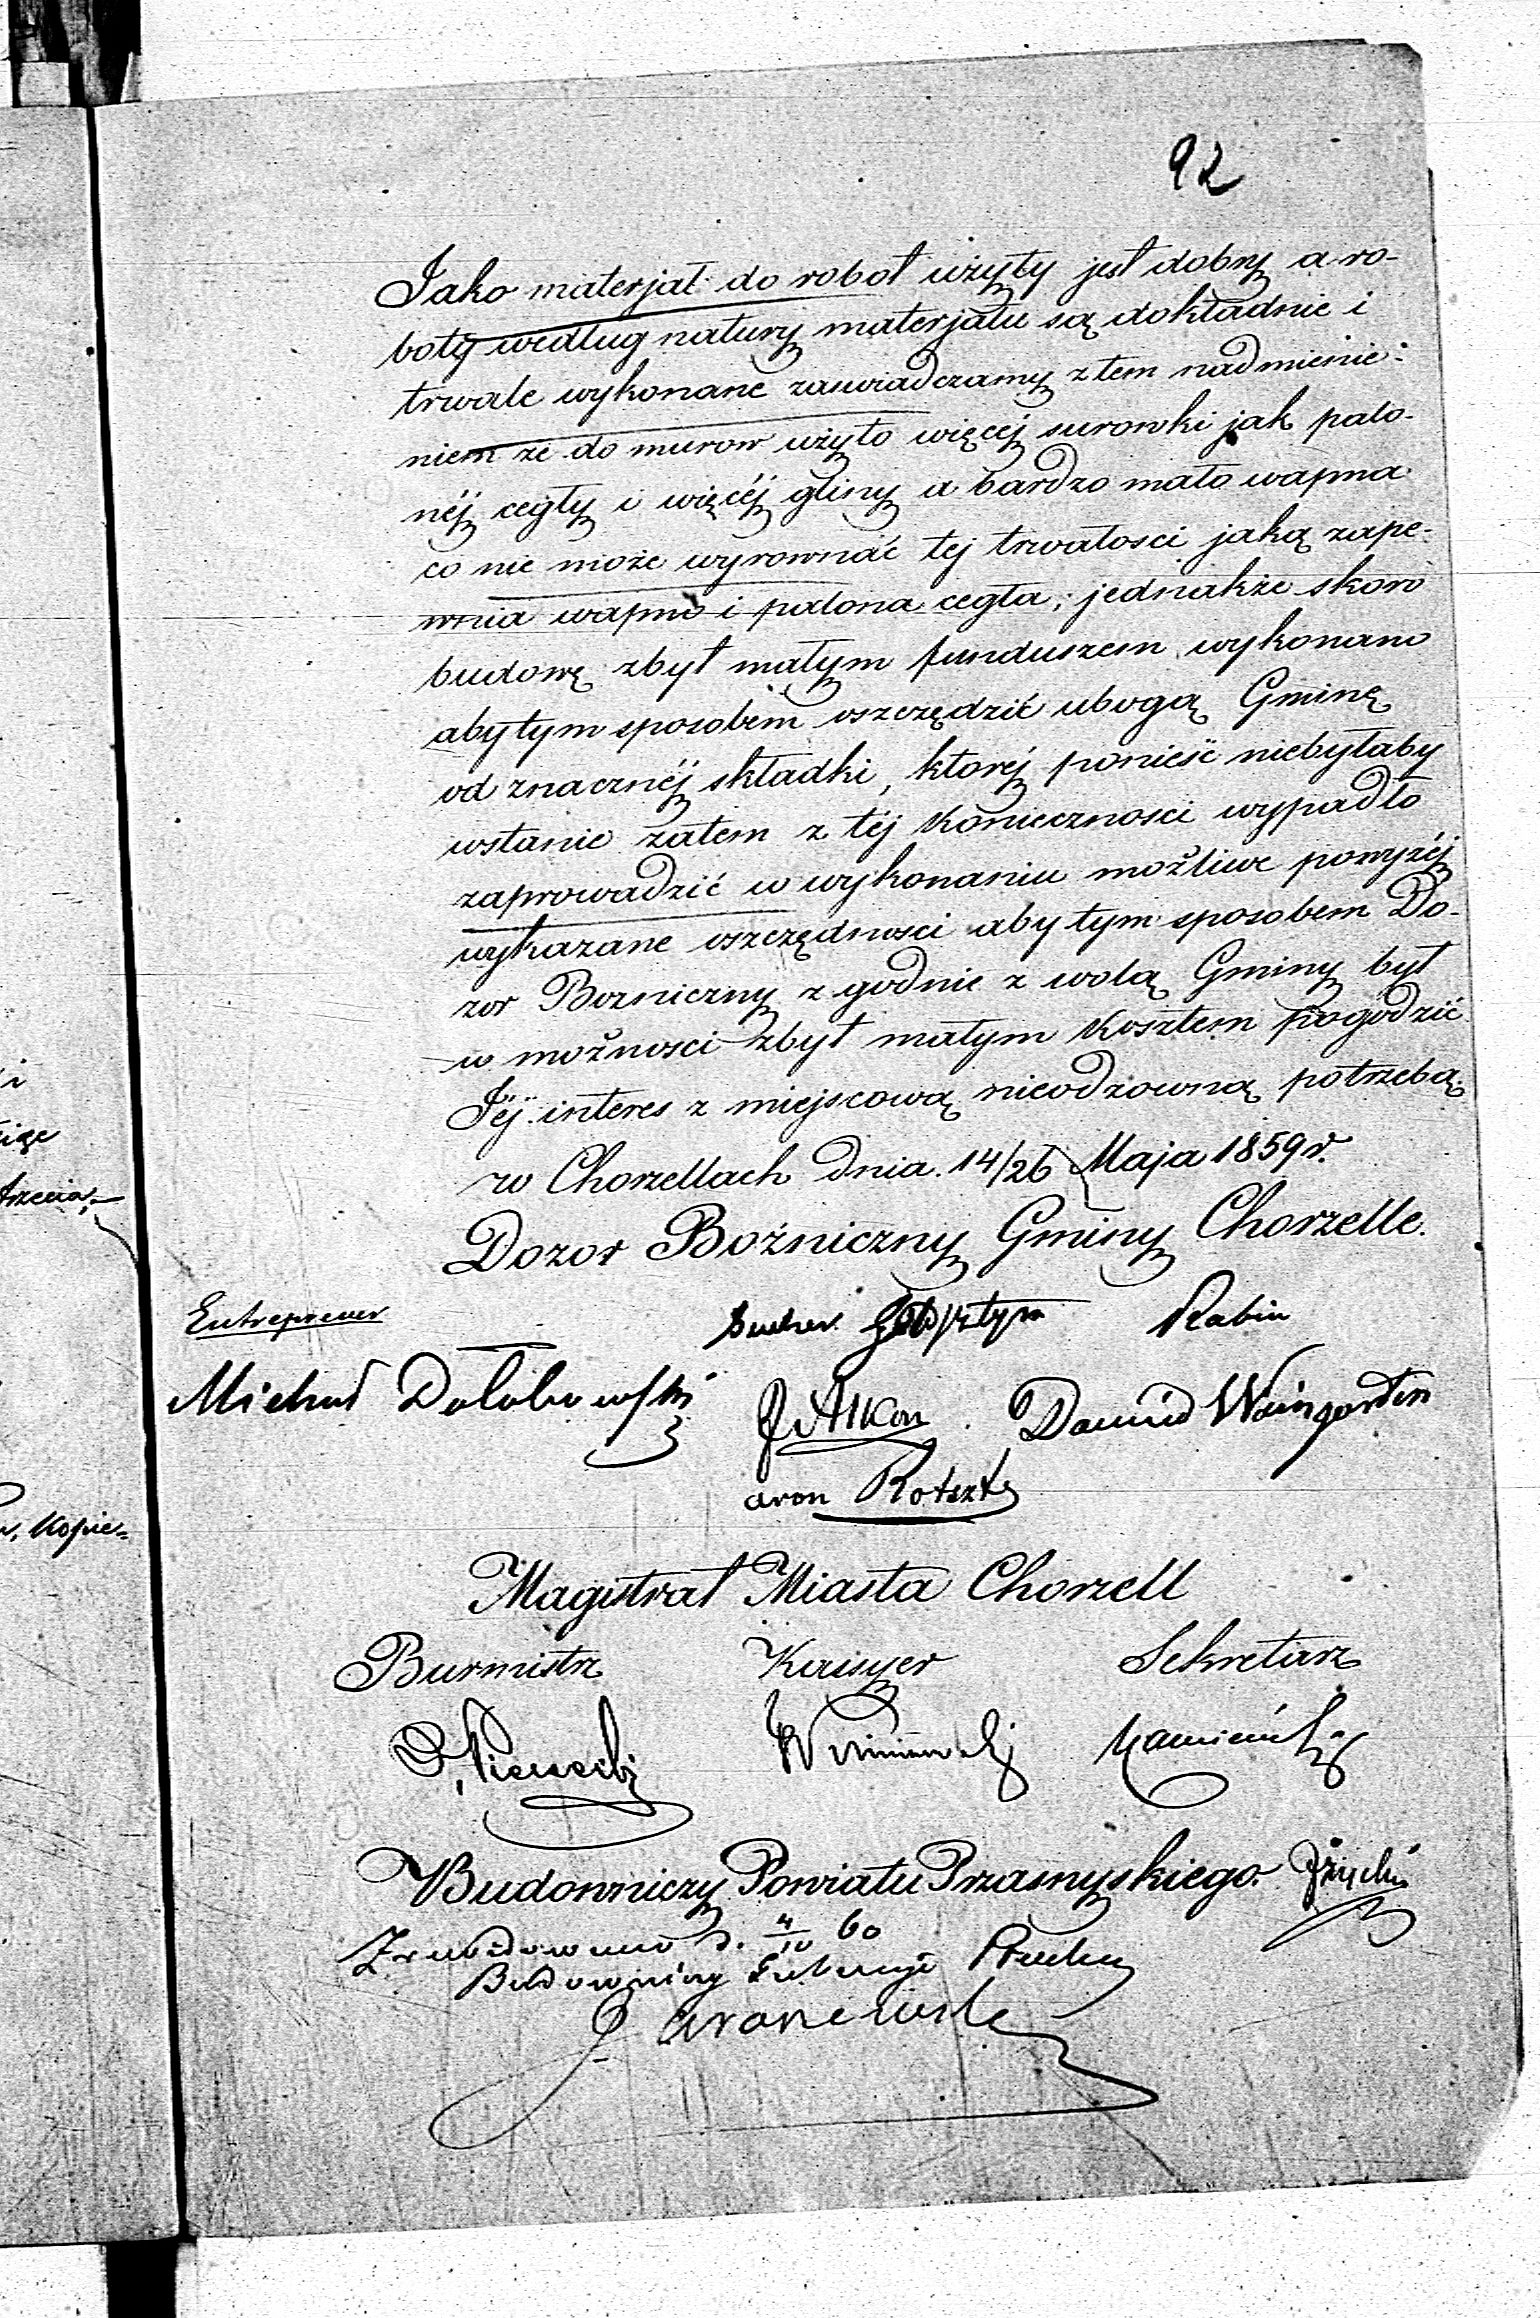 92
Jako materjał do robot użyty jest dobry a ro-
boty według natury materjału są dokładnie i
trwale wykonane zaswiadczamy z tem nadmienie-
niem że do murow użyto więcej surowki jak palo-
néj cegły i więcéj gliny a bardzo mało wapna
co nie może wyrownać tej trwałosci jaką zape-
wnia wapno i palona cegła; jednakże skoro
budowę zbyt małym funduszem wykonano
aby tym sposobem oszczędzić ubogą Gminę
od znacznéj składki, ktorej ponieść niebyłaby
wstanie zatem z téj konieczności wypadło
zaprowadzić w wykonaniu możliwe powyżéj
wykazane oszczędnosci aby tym sposobem Do-
zor Bozniczny zgodnie z wolą Gminy był
w możnosci zbyt małym kosztem pogodzić
Jéj interes z miejscową nieodzowną potrzebą.
w Chorzellach dnia 14/26 Maja 1859 r.
Dozor Bożniczny Gminy Chorzelle.
Entreprener
Rabin
Michał
Dawid Waingarten
aron
Magistrat Miasta Chorzell
Burmistrz Kassyer Sekretarz
Budowniczy Powiatu Przasnyskiego.
Zrewidowano d. 4/10 60
Budowniczy